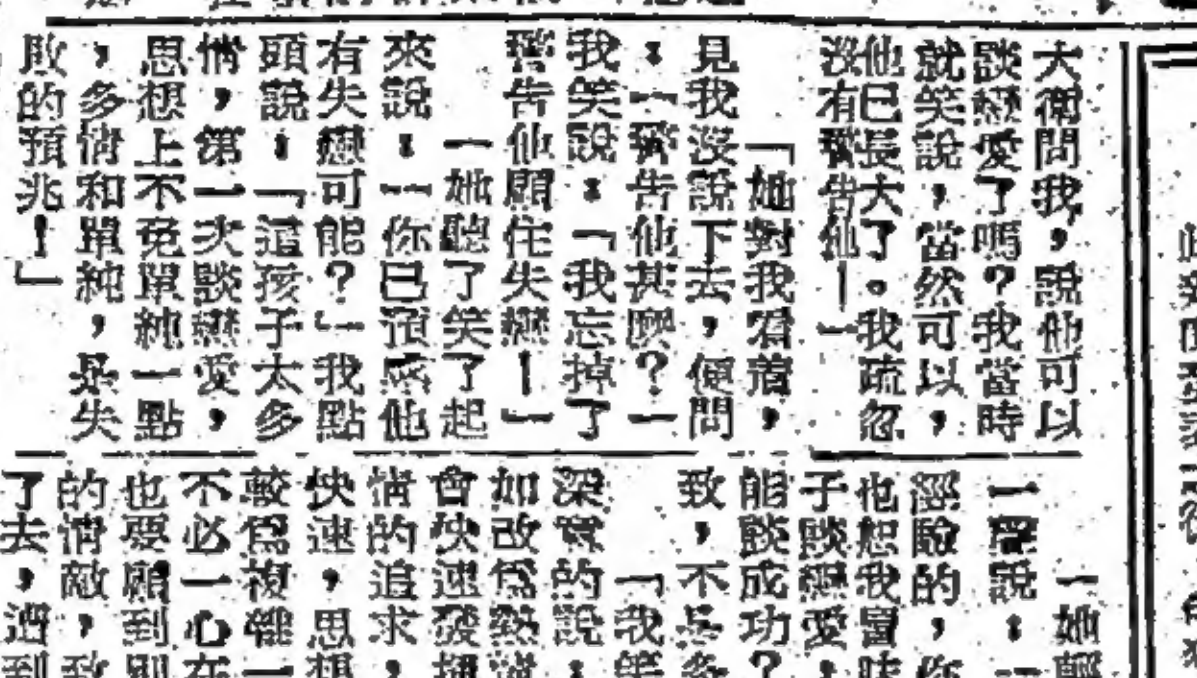 大衛問我，說他可以
談戀愛了嗎？我當時
就笑說，當然可以，
他已長大了。我疏忽
沒有警告他—」
「她對我看着，
見我沒說下去，便問
：「警告他甚麽？」
我笑說：「我忘掉了
警告他顧住失戀！」
「她聽了笑了起
來說：「你已預感他
有失戀可能？」我點
頭說：「這孩子太多
情，第一次談戀愛，
思想上不免單純一點
，多情和單純，是失
敗的預兆！」
「她輕
一聲說：「
經驗的，你
他恕我當時
子談戀愛，
能談成功？
致，不是多
「我笑
深奧的說，
如改爲熱
會快速發
情的追求，
快速，思想
較爲複雜一
不必一心在
也要顧到別
的情敵，致
了去，遇到